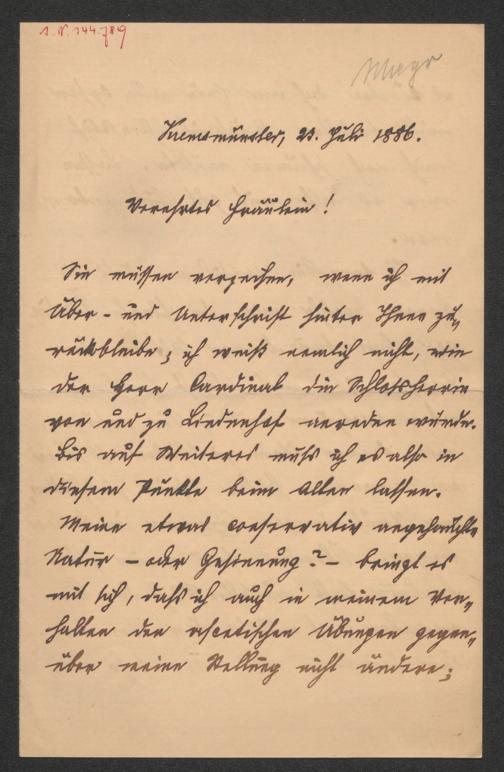 J.N. 144.789
Mayr
Kremsmünster, 23. Juli 1886.
Verehrtes Fräulein!
Sie müssen verzeihen, wenn ich mit
Über- und Unterschrift hinter Ihnen zu„
rückbleibe; ich weiß nemlich nicht, wie
der Herr Cardinal die Schlossherrin
von und zu Lindenhof anreden würde.
Bis auf Weiteres muß ich es also in
diesem Punkte beim Alten lassen.
Meine etwas conservativ angehauchte
Natur – oder Gesinnung? – bringt es
mit sich, daß ich auch in meinem Ver„
halten den ascetischen Übungen gegen„
über meine Stellung nicht ändere;